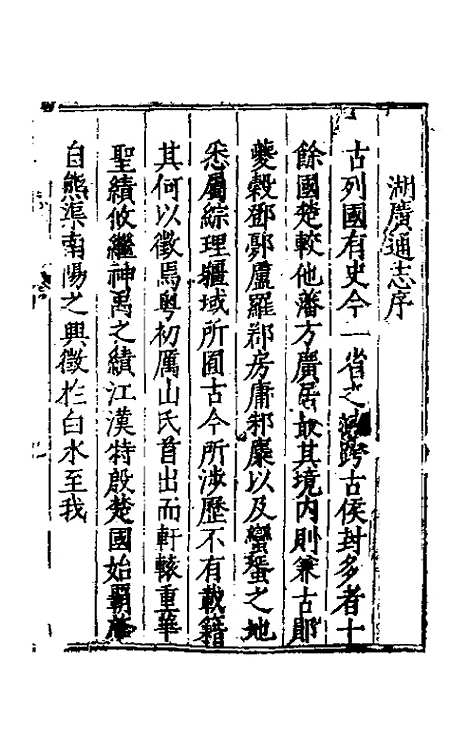 湖廣通志序
古列國有史今一省之跨古侯封多者十
餘國楚較他藩方廣居最其境內則兼古鄖
夔穀鄧鄾盧羅鄀房庸邾麇以及蠻蜑之地
悉屬綜理疆域所囿古今所涉歷不有載籍
其何以徵焉粵初厲山氏首出而軒轅重華
聖績攸繼神禹之績江漢特殷楚國始霸
自熊渠南陽之興徵於白水至我